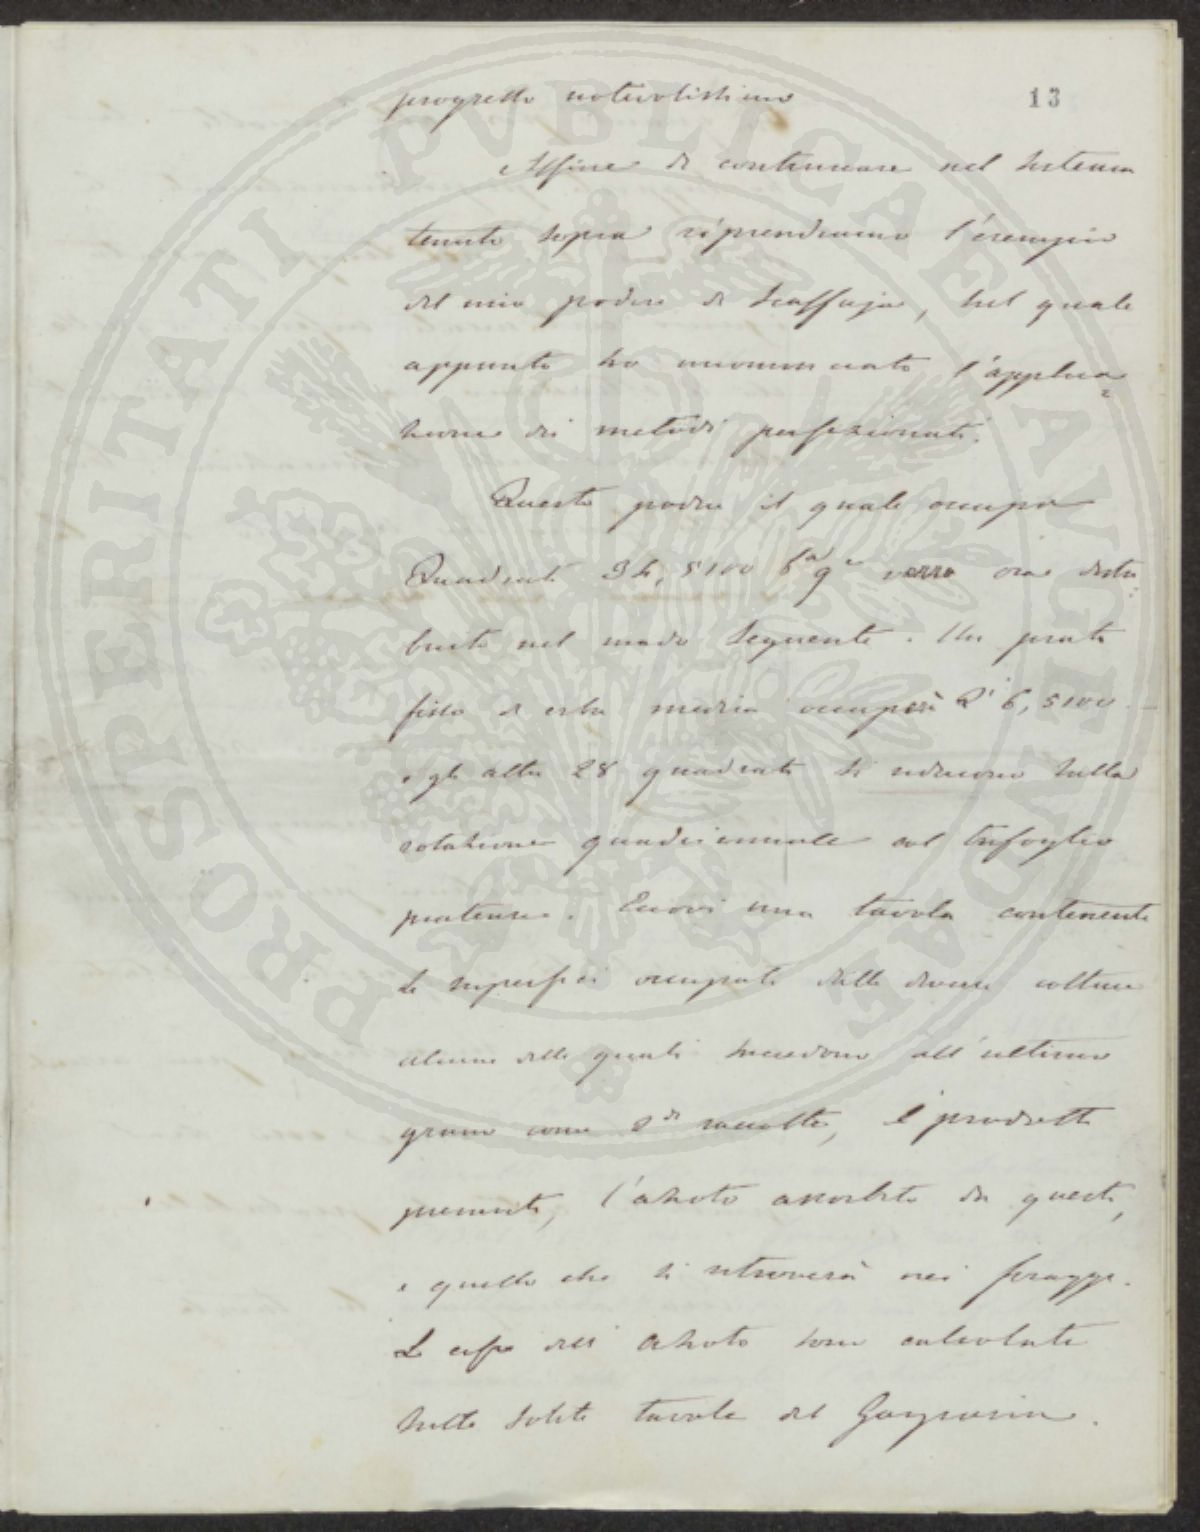 progresso notevolissimo
13
Affine di continuare nel sistema
tenuto sopra riprendiamo l'esempio
del mio podere di Scaffaja, sul quale
appunto ho incominciato l'applica=
zione dei metodi perfezionati.
Questo podere il quale occupa
Quadrati 34,5100 verrà ora distri
buito nel modo seguente. Un prato
fisso di erba medica occuperà Qi 6,5100
e gli altri 28 quadrati si riducono sulla
rotazione quadriennale col trifoglio
pratense. Eccovi una tavola contenente
le superfici occupate dalle diverse colture
alcune delle quali succedono all'ultimo
grano come 2di raccolti, i prodotti
presunti, l'azoto assorbito da questi,
e quello che si ritroverà nei foraggi.
Le cifre dell'azoto sono calcolate
sulle solite tavole del Gasparin.
PROSPERITATI PVBLICAE AVGENDAE